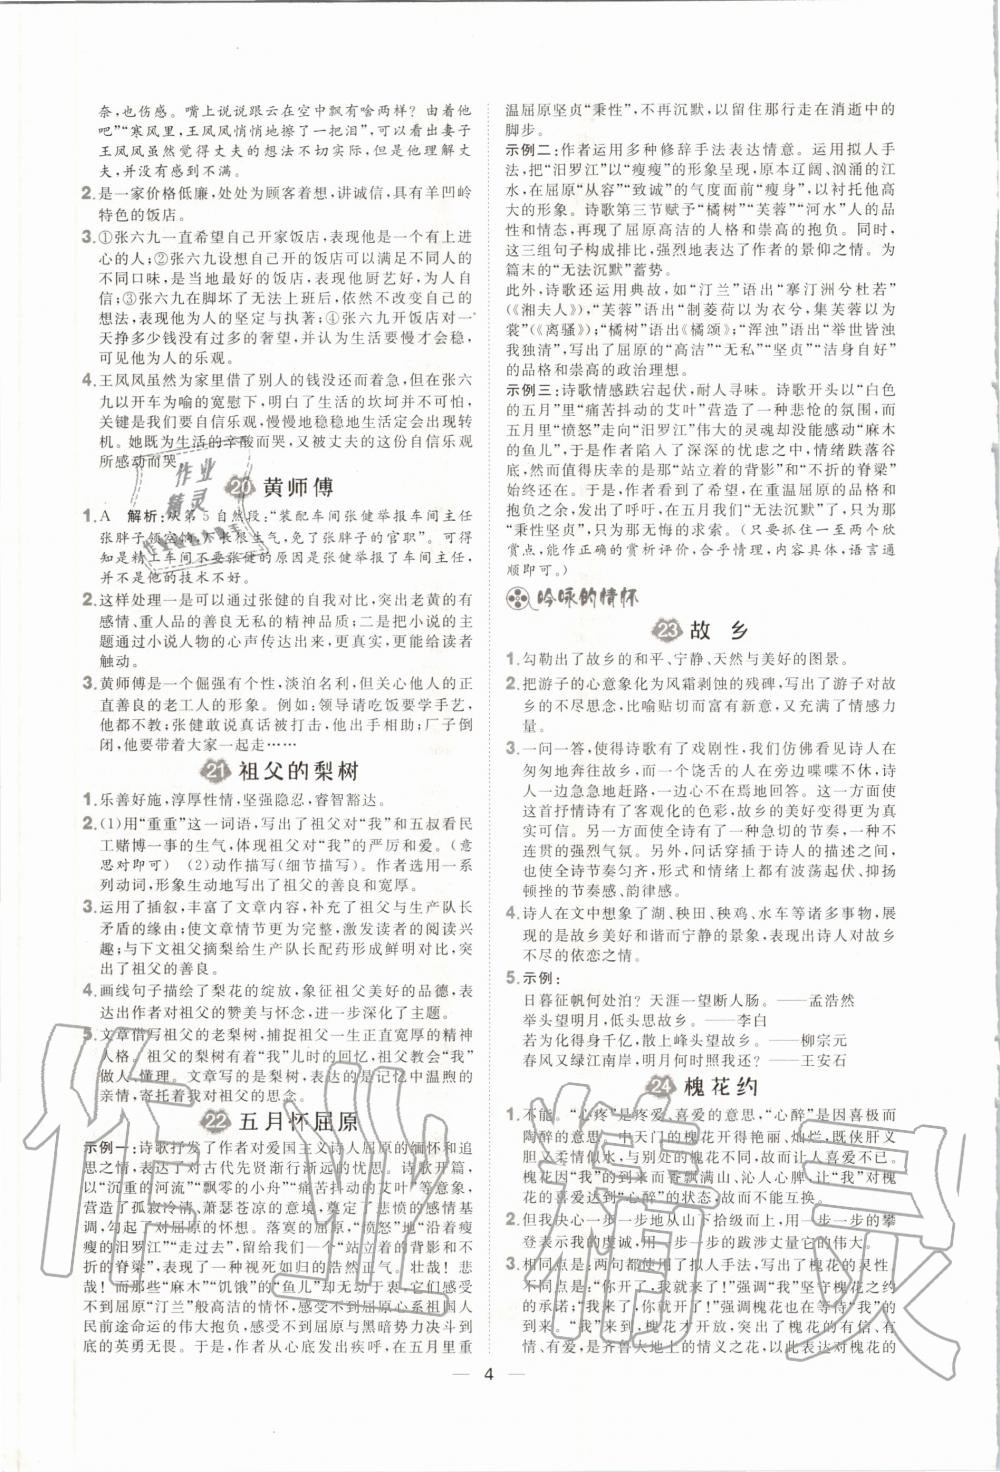 奈,也伤感。嘴上说说跟云在空中飘有啥两样?由着他
吧”“寒风里,王凤凤悄悄地擦了一把泪”,可以看出妻子
王凤凤虽然觉得丈夫的想法不切实际,但能够理解丈
夫,并没有流露出过分的不满。
2.是一家价格低廉,处处为顾客着想,讲诚信,具有羊凹岭
特色的饭店。
3.①张六九一直希望自己开家饭店,表现他是一个有上
进心的人;②张六九设想自己开的饭店可以满足不同人的
不同口味,是当地最好的饭店,表现他厨艺好,为人自
信;③张六九在脚坏了无法上班后,依然不改变自己的
想法,表现他为人的坚定与执著;④张六九开饭店对一
天挣多少钱没有过多的奢望,并认为生活要慢才会稳,
可见他为人的乐观。
4.王凤凤虽然为家里借了别人的钱没还而着急,但在张六
九以开车为喻的宽慰下,明白了生活的坎坷并不可怕,
关键是我们要自信乐观,慢慢地稳稳地生活定会出现转
机。她既为生活的辛酸而哭,又被丈夫的这份自信乐观
所感动而哭。
20 黄师傅
1.A 解析:从第5自然段:“装配车间张健举报车间主任
张胖子领空饷,厂长很生气,免了张胖子的官职”。可以得
知,是精工车间不要张健的原因是张健举报了车间主任,
并不是他的技术不好。
2.这样处理一是可以通过张健的自我对比,突出老黄的有
感情、重人品的善良无私的精神品质;二是把小说的主
题通过小说人物的心声传达出来,更能够给读者
触动。
3.黄师傅是一个倔强有个性,淡泊名利,但关心他人的正
直善良的老工人的形象。例如:领导请吃饭要学手艺,
他都不教;张健敢说真话被打击,他出手相助;厂子倒
闭,他要带着大家一起走……
21 祖父的梨树
1.乐善好施,淳厚性情,坚强隐忍,睿智豁达。
2.(1)用“重重”这一词语,写出了祖父对“我”和五叔看民
工赌博一事的生气,体现祖父对“我”的严厉和爱。(意
思对即可) (2)动作描写(细节描写)。作者选用一系
列动词,形象生动地写出了祖父的善良和宽厚。
3.运用了插叙,丰富了文章内容,补充了祖父与生产队长
矛盾的缘由;使文章情节更为完整,激发读者的阅读兴
趣;与下文祖父摘梨给生产队长配药形成鲜明对比,突
出了祖父的善良。
4.画线句子描绘了梨花的绽放,象征祖父美好的品德,表
达出作者对祖父的赞美与怀念,进一步深化了主题。
5.文章借写祖父的老梨树,捕捉祖父一生正直宽厚的精神
人格。祖父的梨树有着“我”儿时的回忆,也代表了“我”
做人的懂理。文章写的是梨树,表达的是记忆中温煦的
亲情,寄托着我对祖父的思念。
22 五月怀屈原
示例一:诗歌抒发了作者对爱国主义诗人屈原的缅怀和追
思之情,表达了对古代先贤渐行渐远的忧思。诗歌开篇,
以“沉重的河流”“飘零的小舟”“痛苦抖动的艾叶”等意象,
营造了孤寂冷清、萧瑟苍凉的意境,奠定了悲愤的情感基
调,勾起了对屈原的怀想。落寞的屈原,“愤怒”地“沿着瘦
瘦的汨罗江”“走过去”,留给我们一个“站立着的背影和不
折的脊梁”,表现了一种视死如归的浩然正气。壮哉!悲
哉!而那些“麻木”“饥饿”的“鱼儿”却无动于衷,它们感受
不到屈原“汀兰”般高洁的情怀,感受不到屈原心系祖国人
民前途命运的伟大抱负,感受不到屈原与黑暗势力决斗到
底的英勇无畏。于是,作者从心底发出疾呼,在五月里重
温屈原坚贞“秉性”,不再沉默,以留住那行走在消逝中的
脚步。
示例二:作者运用多种修辞手法表达情意。运用拟人手
法,把汨罗江以“瘦瘦”的形象呈现,原本辽阔、汹涌的江
水,在屈原“从容”“致诚”的气度面前“瘦身”,以衬托他高
大的形象。诗歌第三节赋予“橘树”“芙蓉”“河水”人的品
性和情态,再现了屈原高洁的人格和崇高的抱负。同时,
这三组句子构成排比,强烈地表达了作者的景仰之情。为
篇末的“无法沉默”蓄势。
此外,诗歌还运用典故,如“汀兰”语出“搴汀洲兮杜若”
(《湘夫人》),“芙蓉”语出“制菱荷以为衣兮,集芙蓉以为
裳”(《离骚》),“橘树”语出《橘颂》,“浑浊”语出“举世皆浊
我独清”,写出了屈原的“高洁”“无私”“坚贞”“洁身自好”
的品格和崇高的政治理想。
示例三:诗歌情感跌宕起伏,耐人寻味。诗歌开头以“白色
的五月”里“痛苦抖动的艾叶”营造了一种悲怆的氛围,而
五月里“愤怒”而“瘦瘦”的“汨罗江”伟大的灵魂却成为“麻木
的鱼”的食粮,于是作者陷入了深深的忧虑中,情绪跌落谷
底。然而值得庆幸的是那“站立着的背影”和“不折的脊梁”
始终屹立着,让我们看到了希望。于是,在重温屈原的品格和
抱负之余,发出了呼吁,在五月里,我们无法沉默,为了那
“秉性坚贞”,只为那无悔的求索。(只要抓住一至两个欣
赏点,能作正确的赏析评价,合乎情理,内容具体,语言通
顺即可。)
吟咏的情怀
23 故 乡
1.勾勒出了故乡的和平、宁静、天然与美好的图景。
2.把游子的心意象化为风霜剥蚀的残碑,写出了游子对故
乡的不尽思念,比喻贴切而富有新意,又充满了情感力
量。
3.一问一答,使得诗歌有了戏剧性,我们仿佛看到诗人在
匆匆地奔往故乡,而一个饶舌的人在旁边喋喋不休,诗
人一边急急地赶路,一边心不在焉地回答。这一方面使
这首抒情诗有了客观化的色彩,故乡的美好变得更为真
实可信。另一方面使全诗有了一种急切的节奏,一种不
连贯的强烈气氛。另外,问代替了诗人的描述之间,
使全诗节奏匀齐,形式和情绪上都有波荡起伏、抑扬
顿挫的节奏感、韵律感。
4.诗人在文中想象了湖、秧田、秧鸡、水车等诸多事物,展
现的是故乡美好和谐而宁静的景象,表现出诗人对故乡
不尽的依恋之情。
5.示例:
日暮征帆何处泊?天涯一望断人肠。——孟浩然
举头望明月,低头思故乡。——李白
若为化得身千亿,散上峰头望故乡。——柳宗元
春风又绿江南岸,明月何时照我还?——王安石
24 槐花约
1.不能。“心疼”是疼爱、喜爱的意思,“心醉”是因喜极而
陶醉的意思。中天门的槐花开得艳丽、灿烂,既侠肝义
胆又柔情似水,与别处的槐花不同,甚至可以说中天门
槐花因“我”的到来而开得满山满谷、沁人心脾,“我”对槐
花的喜爱达到“心醉”的状态,故而不能互换。
2.但我没有一步一步地从山下拾级而上,用一步一步的攀
登表示我的虔诚,用一步一步的跋涉丈量它的伟大。
3.相同点是:两句都使用了拟人手法,写出了槐花的灵性。
不同点是:“你开了,我就来了!”强调“我”坚守槐花之约
的承诺;“我来了,你就开了!”强调槐花也在等待“我”的
到来,为“我”的到来而尽情绽放,突出了槐花的有情有
义、有信有义,是齐鲁大地上的情义之花,以此表达槐花的
4
作业精灵